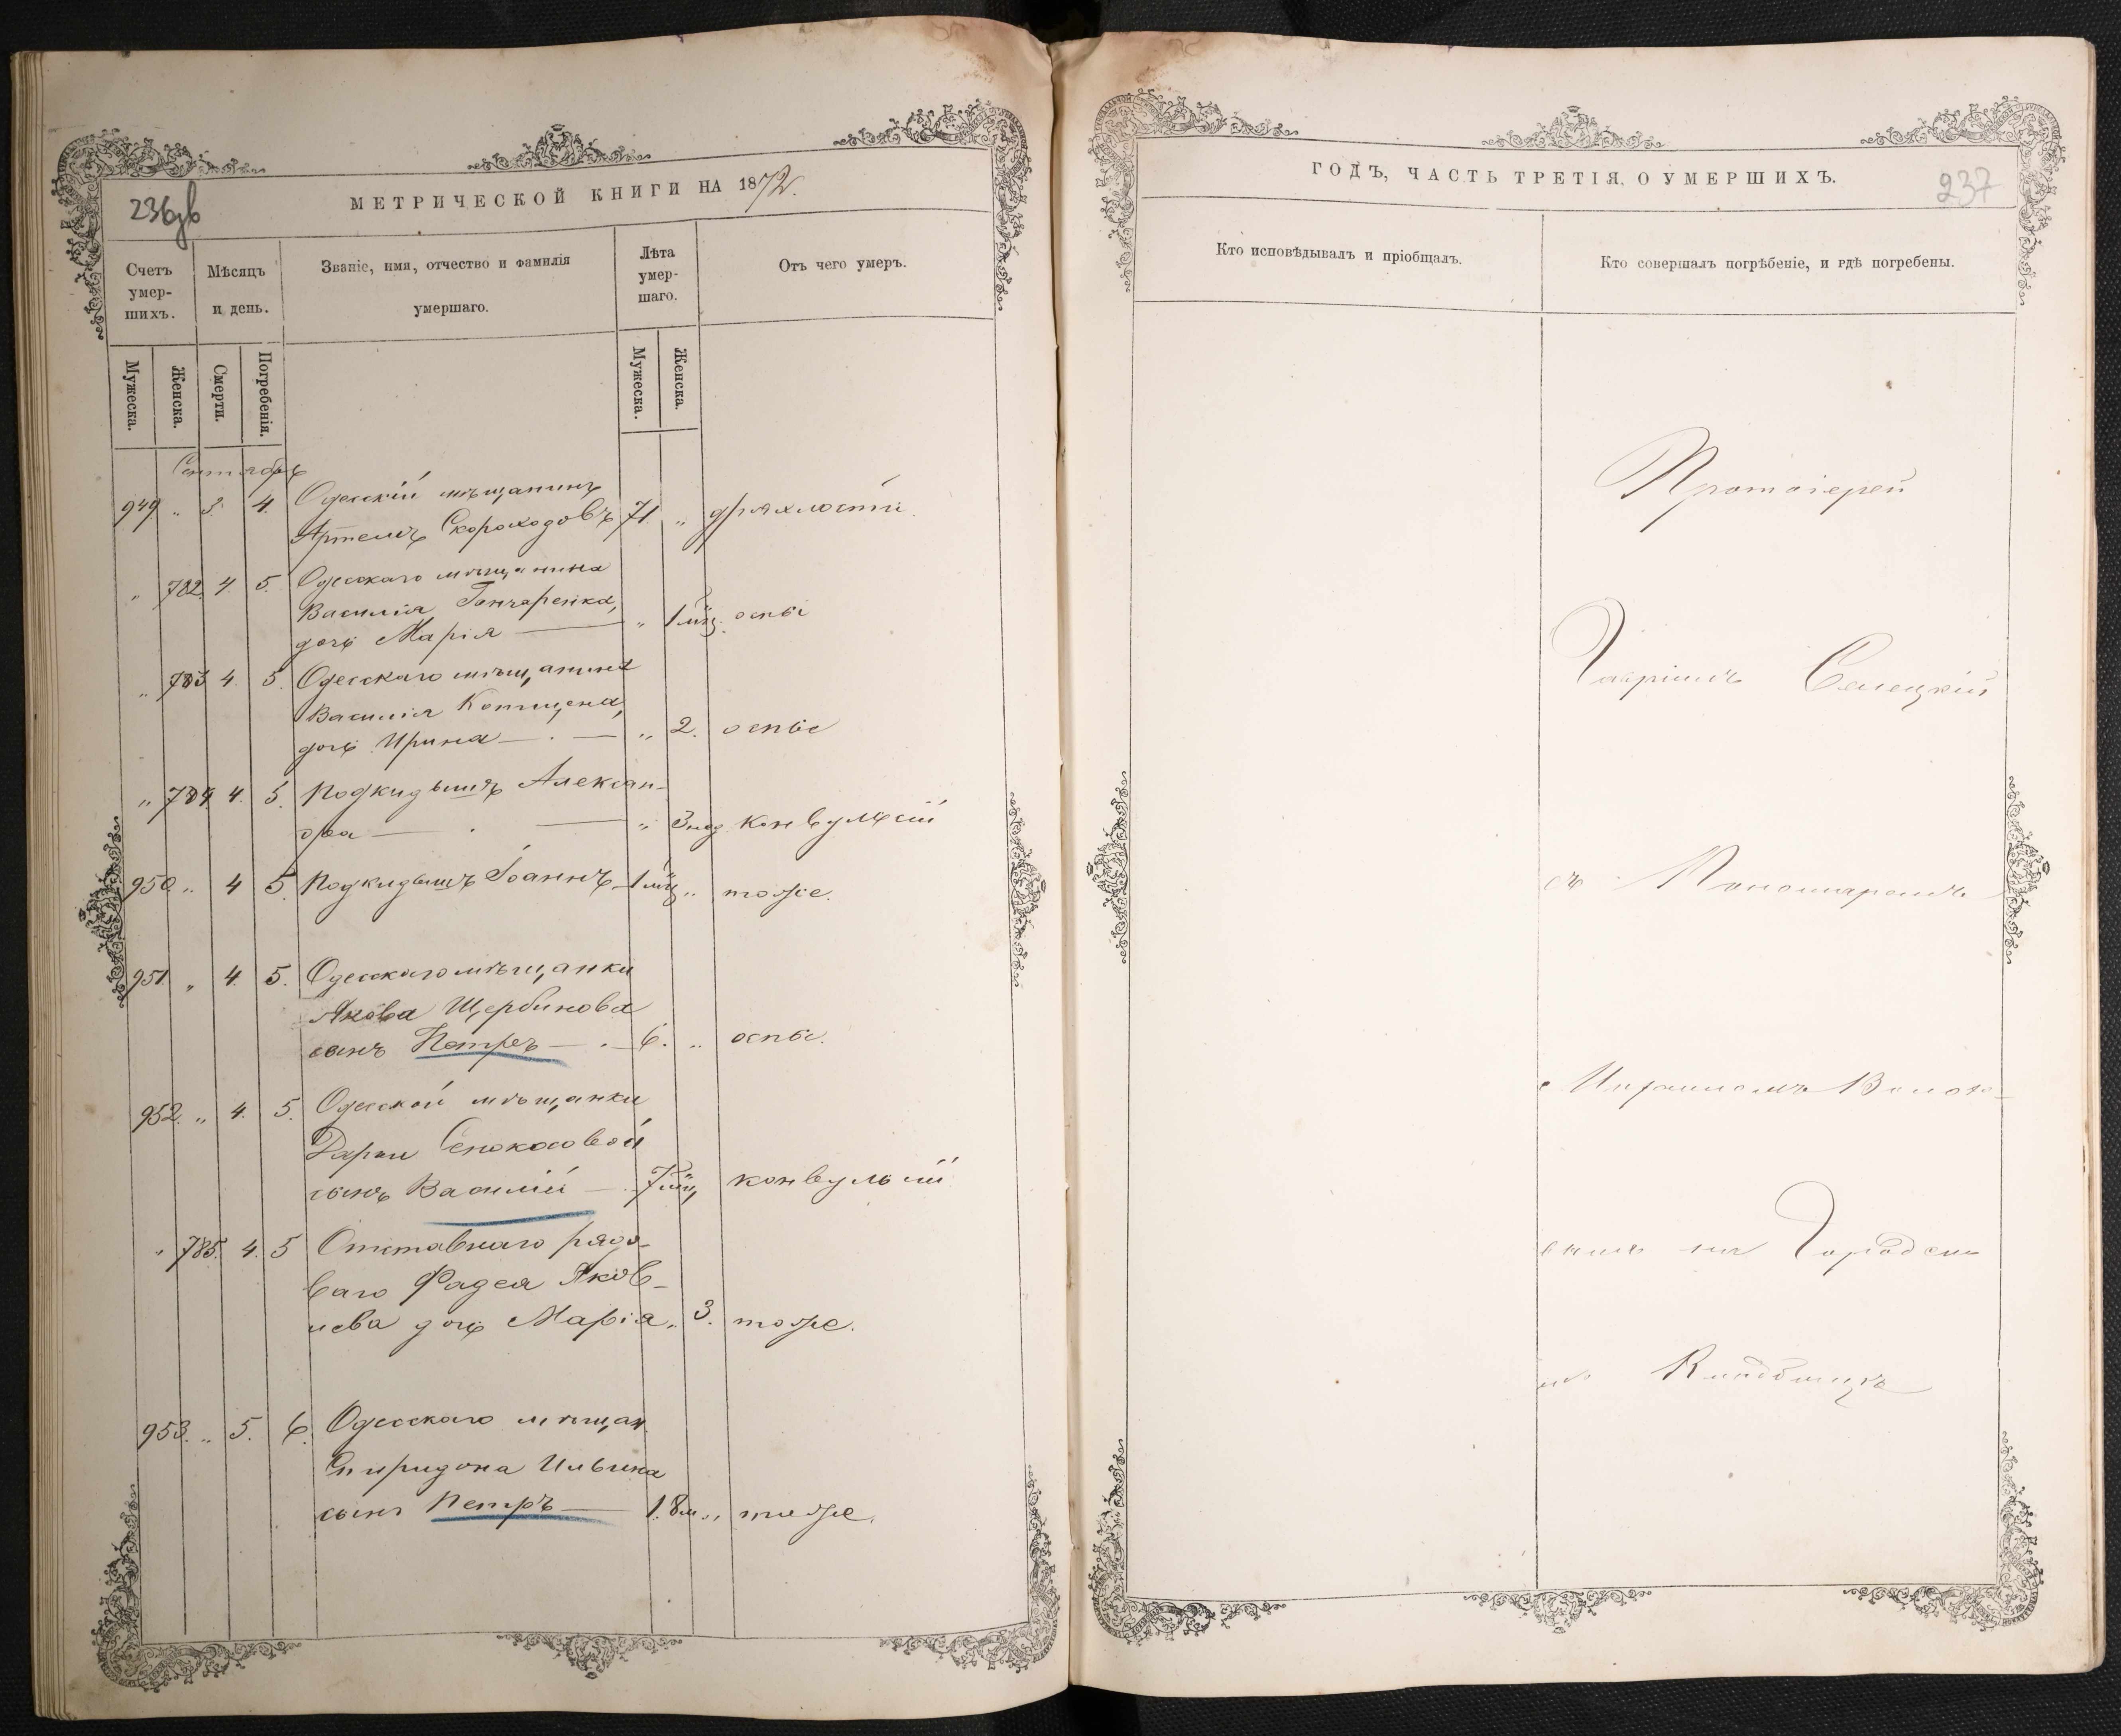 236об
МЕТРИЧЕСКОЙ КНИГИ НА 1872.
Счетъ умер-шихъ.
Мѣсяцъ и день.
Званіе, имя, отчество и фамилія умершаго.
Лѣта умер-шаго.
Отъ чего умеръ.
Мужеска.
Женска.
Смерти.
Погребенія.
Мужеска.
Женска.
Сентябрь
949 „ 3. 4. Одесскій мѣщанинъ
Артемъ Скороходовъ 71. „ дряхлости.
„ 782. 4. 5. Одесскаго мѣщанина
Василія Гончаренка,
дочь Марія — „ 1 мц. оспы
„ 783 4. 5. Одесскаго мѣщанина
Василія
дочь Ирина — „ 2. оспы
„ 784. 4. 5. Подкидышъ Алексан-
дра — „ 3 нед. конвульсій
950. „ 4 5. Подкидышъ Іоаннъ — 1 мц „ тоже.
951. „ 4. 5. Одесскаго мѣщанки
Якова Щербинова
сынъ Петръ — 6. „ оспы.
952. „ 4. 5. Одесской мѣщанки
Дарьи Сенокосовой
сынъ Василій — 7 мц конвульсій
„ 785. 4. 5 Отставнаго рядо-
ваго Фадея Яков-
лева дочь Марія „ 3. тоже.
953. „ 5. 6. Одесскаго мѣщан.
Спиридона Ильина
сынъ Петръ — 1. 8 м. „ тоже.
ГОДЪ, ЧАСТЬ ТРЕТІЯ, О УМЕРШИХЪ.
237
Кто исповѣдывалъ и пріобщалъ.
Кто совершалъ погрѣбеніе, и гдѣ погребены.
Протоіерей
Гавріилъ Селецкій
съ Пономаремъ
на Городско
Кладбищѣ